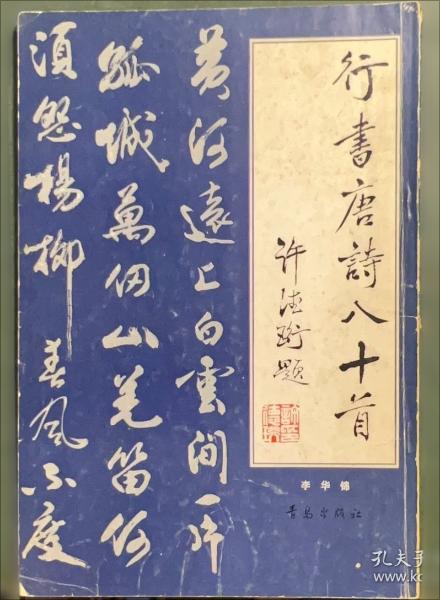 行書唐詩八十首
許德珩題
李华锦
青岛出版社
黄河遠上白雲间一片
孤城萬仞山羌笛何
須怨楊柳春風不度
孔夫子
www.kc